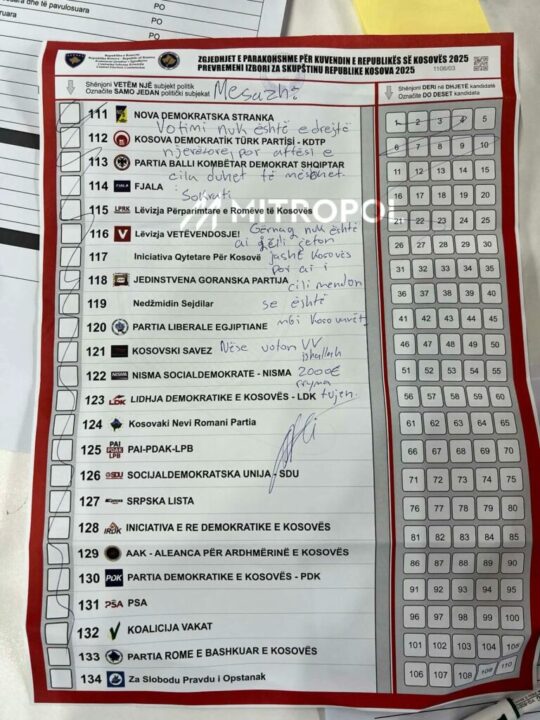 PO
PO
PO
dhe të pavulosuara
Republika e Kosovës
ZGJEDHJET E PARAKOHSHME PËR KUVENDIN E REPUBLIKËS SË KOSOVËS 2025
PREVREMENI IZBORI ZA SKUPŠTINU REPUBLIKE KOSOVA 2025
1106/03
Shënjoni VETËM NJË subjekt politik
Označite SAMO JEDAN politički subjekat
Mesazhi
Shënjoni DERI në DHJETË kandidatë
Označite DO DESET kandidata
111 NOVA DEMOKRATSKA STRANKA
Votimi nuk është e drejtë
112 KOSOVA DEMOKRATİK TÜRK PARTİSİ - KDTP
njerëzore, por aftësi e
113 PARTIA BALLI KOMBËTAR DEMOKRAT SHQIPTAR
cila duhet të mësohet.
114 FJALA FJALA
Sokrati
MITROPOL
115 LPRK Lëvizja Përparimtare e Romëve të Kosovës
116 Lëvizja VETËVENDOSJE!
nuk është
ai çeton
117 Iniciativa Qytetare Për Kosovë
jashtë Kosovës
por ai i
118 JEDINSTVENA GORANSKA PARTIJA
cili mendon
119 Nedžmidin Sejdilar
se është
120 PARTIA LIBERALE EGJIPTIANE
mbi Kosovarët
121 KOSOVSKI SAVEZ
Nëse voton VV
ishallah
122 NISMA NISMA SOCIALDEMOKRATE - NISMA
2000€
rryma
123 LDK LIDHJA DEMOKRATIKE E KOSOVËS - LDK
tujen.
124 Kosovaki Nevi Romani Partia
125 PAI PDAK LPB PAI-PDAK-LPB
126 SDU SOCIJALDEMOKRATSKA UNIJA - SDU
127 SRPSKA LISTA
128 IRDK INICIATIVA E RE DEMOKRATIKE E KOSOVËS
129 AAK - ALEANCA PËR ARDHMËRINË E KOSOVËS
130 PDK PARTIA DEMOKRATIKE E KOSOVËS - PDK
131 PSA PSA
132 KOALICIJA VAKAT
133 PARTIA ROME E BASHKUAR E KOSOVËS
134 Za Slobodu Pravdu i Opstanak
1 2 3 4 5
6 7 8 9 10
11 12 13 14 15
16 17 18 19 20
21 22 23 24 25
26 27 28 29 30
31 32 33 34 35
36 37 38 39 40
41 42 43 44 45
46 47 48 49 50
51 52 53 54 55
56 57 58 59 60
61 62 63 64 65
66 67 68 69 70
71 72 73 74 75
76 77 78 79 80
81 82 83 84 85
86 87 88 89 90
91 92 93 94 95
96 97 98 99 100
101 102 103 104 105
106 107 108 109 110